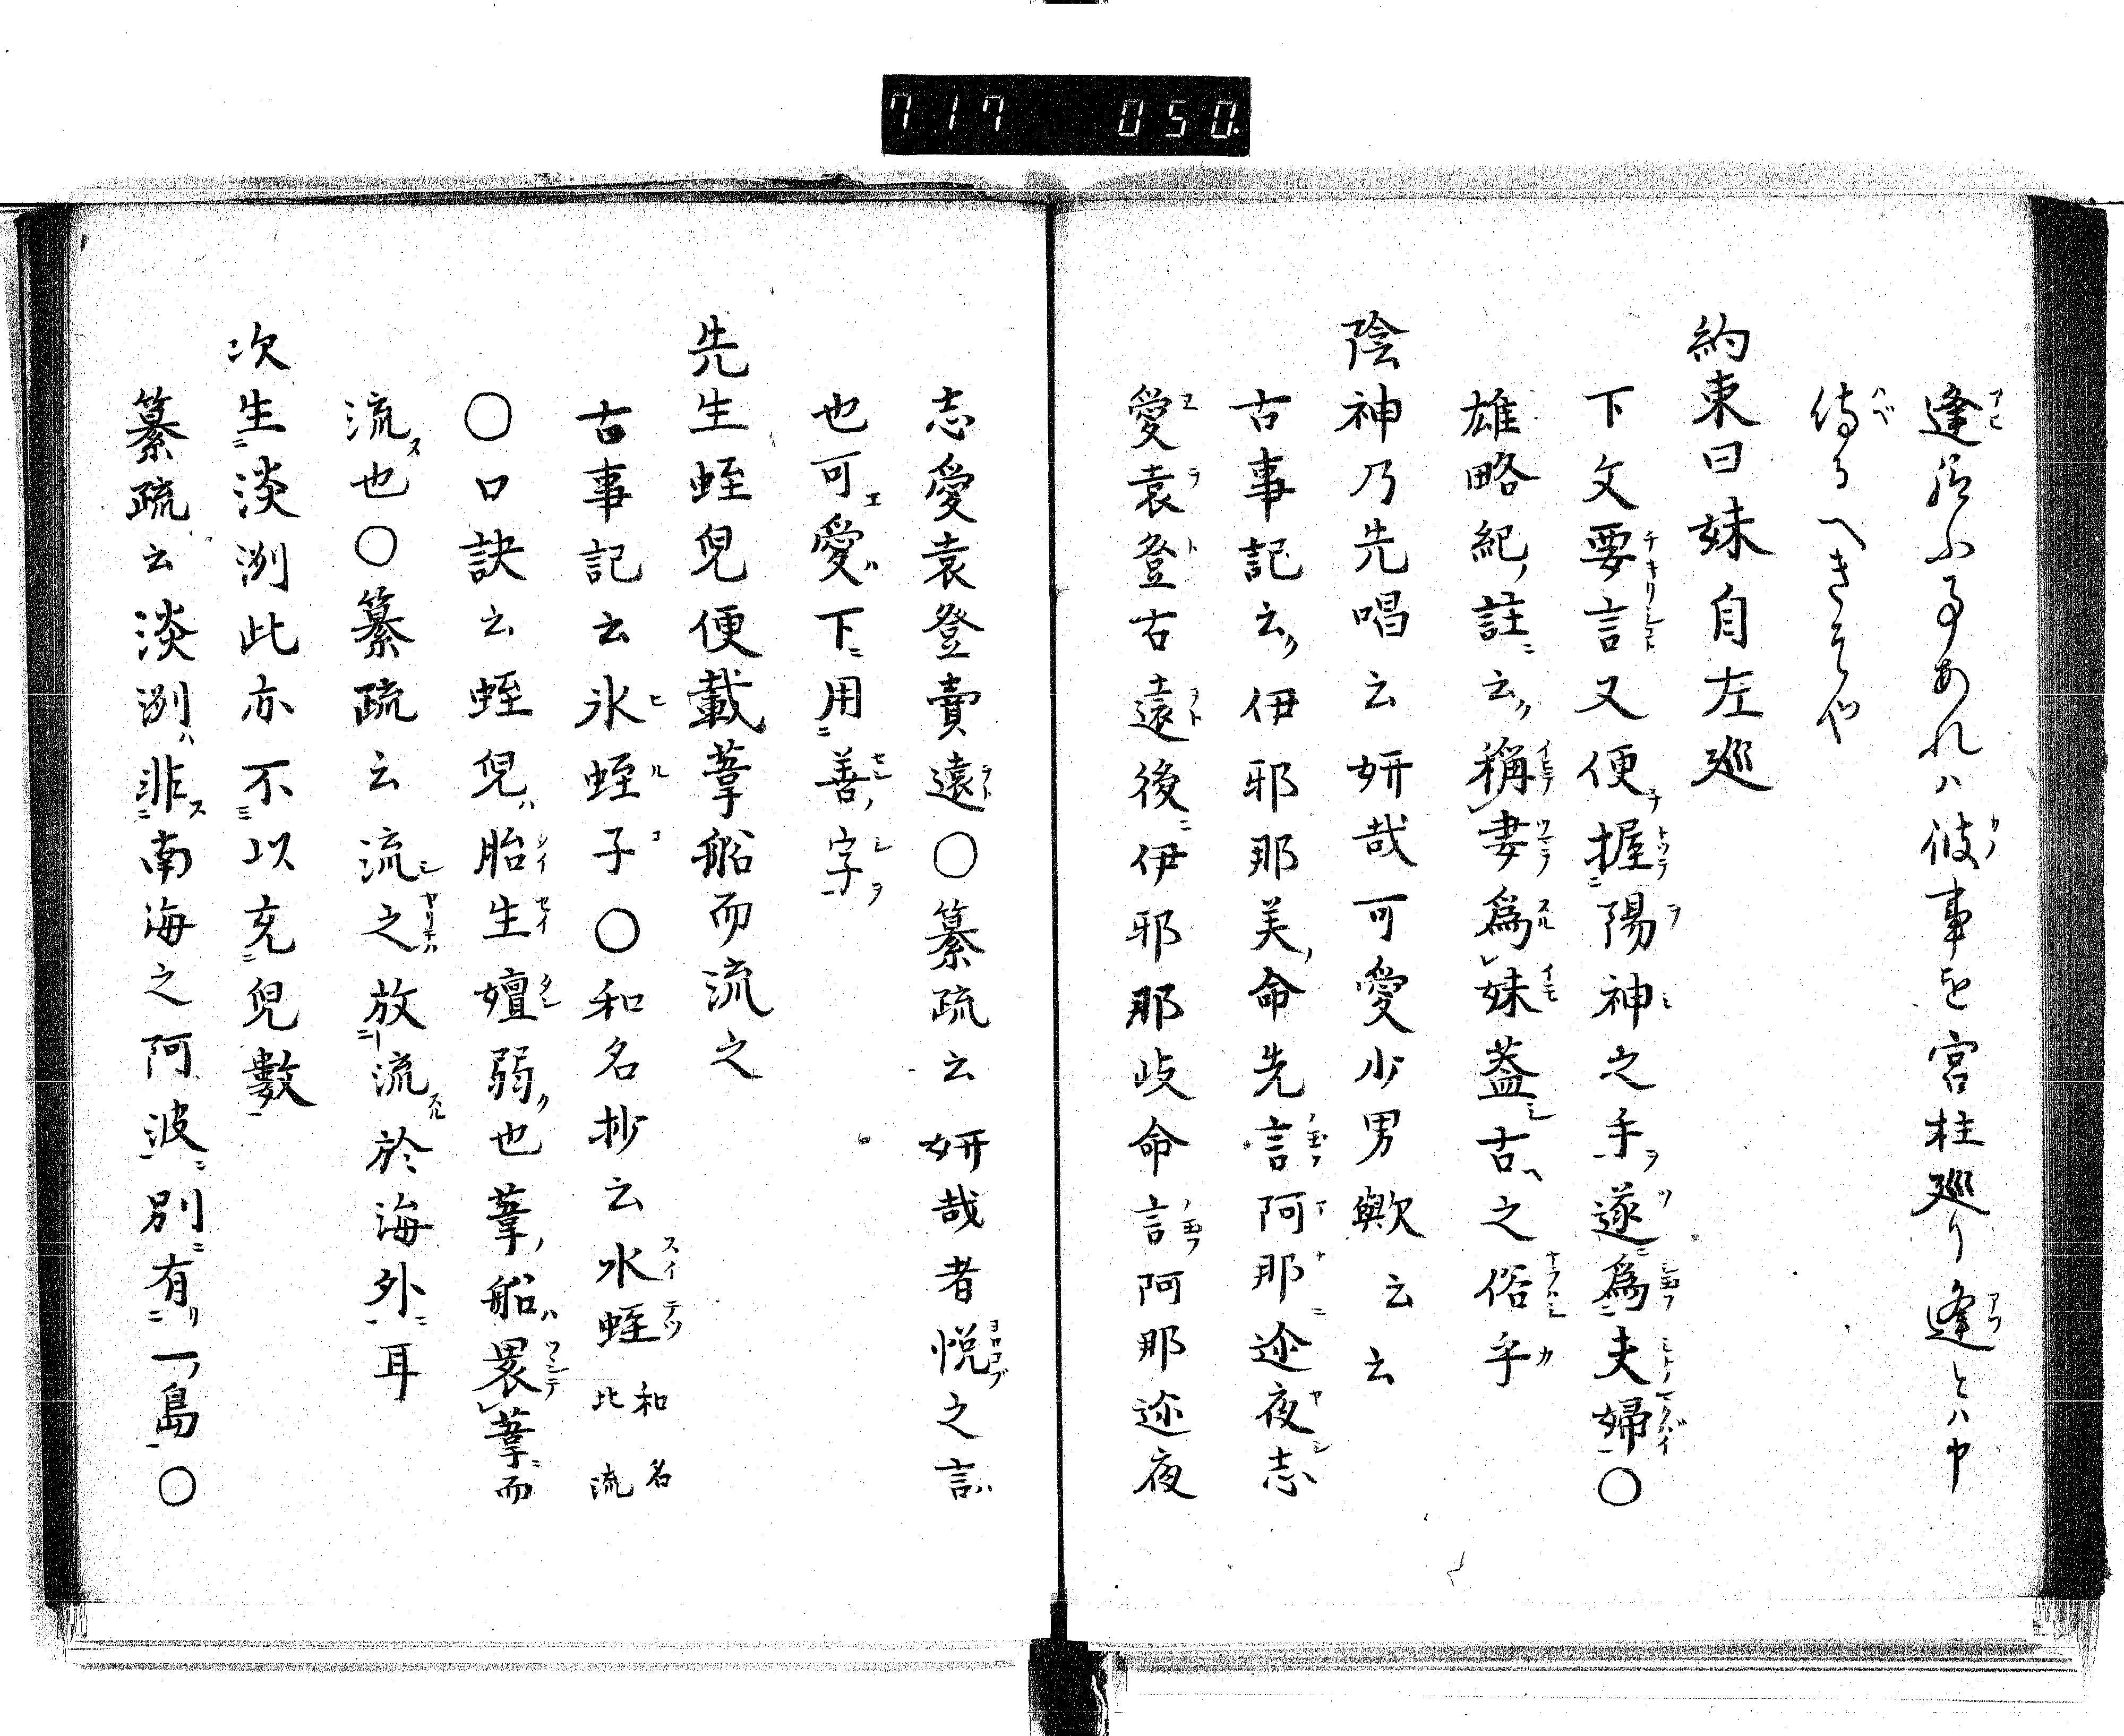 717 050.
逢給ふ事あれハ彼事を宮柱廻り逢とハ申
侍るへきそや
約束曰妹自左廻
下文要言又便握陽神之手遂為夫婦〇
雄略紀註云稱妻為妹蓋古之俗乎
陰神乃先唱云妍哉可愛少男歟云云
古事記云伊耶那美命先言阿那迩夜志
愛袁登古遠後伊耶那岐命言阿那迩夜
志愛袁登賣遠〇纂疏云妍哉者悦之言
也可愛下用善字
先生蛭兒便載葦船而流之
古事記云氷蛭子〇和名抄云水蛭和名比流
〇口訣云蛭兒胎生嬗弱也葦船褁葦而
流也〇纂疏云流之放流於海外耳
次生淡洲此亦不以充兒數
纂疏云淡洲非南海之阿波別有一島〇